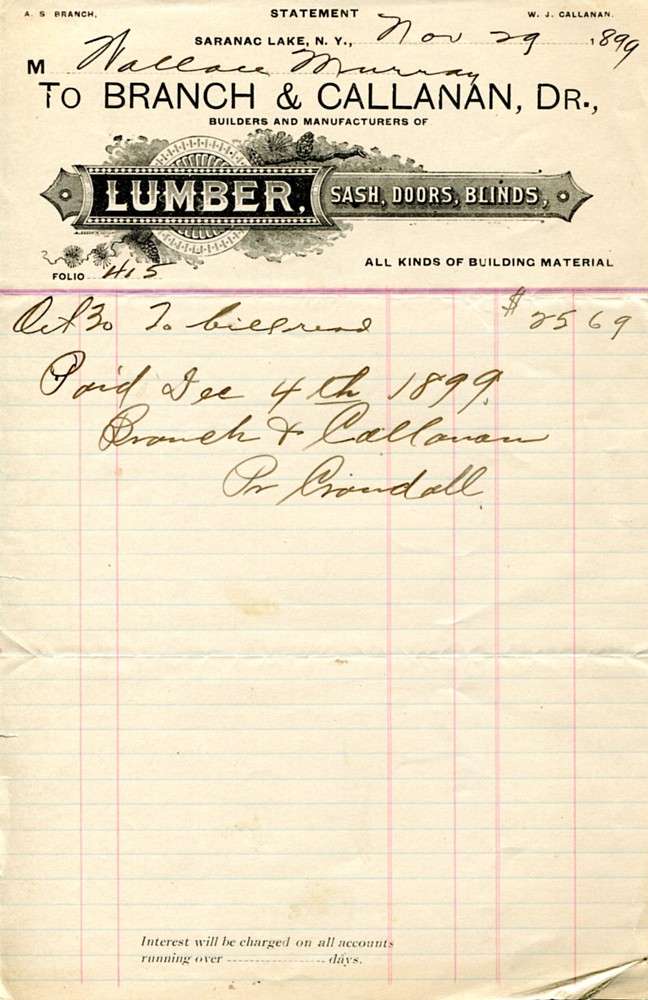 A. S BRANCH, STATEMENT W. J. CALLANAN.
SARANAC LAKE, N. Y., Nov 29 1899
M Wallace Murray
To BRANCH & CALLANAN, DR.,
BUILDERS AND MANUFACTURERS OF
LUMBER, SASH, DOORS, BLINDS,
ALL KINDS OF BUILDING MATERIAL
FOLIO 415
Oct 30 To bill rend $ 25 69
Paid Dec 4th 1899.
Branch & Callanan
Pr Crandall
Interest will be charged on all accounts
running over ---------------------- days.